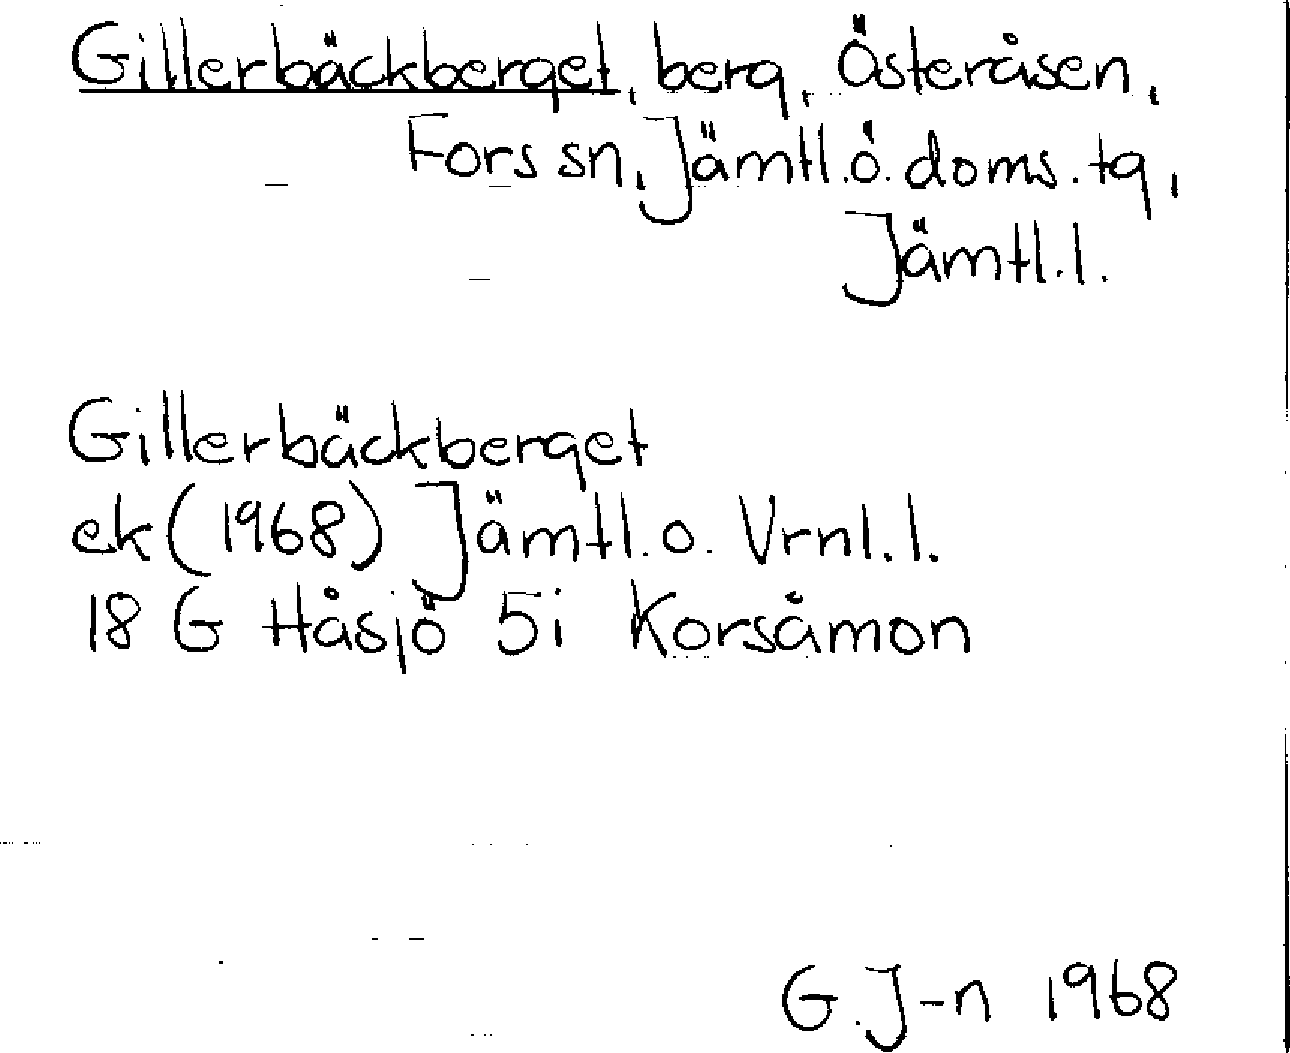 Gillerbäckberget, berg, Österåsen,
Fors sn, Jämtl.ö.doms.tg,
Jämtl.l.
Gillerbäckberget
ek(1968) Jämtl.o. Vrnl.l.
18 G Håsjö 5i Korsåmon
G.J-n 1968